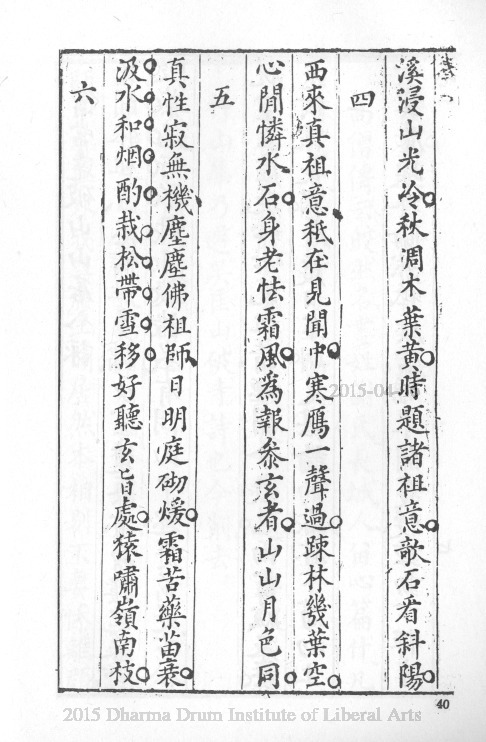 溪浸山光冷秋凋木葉黃時題諸祖意欹石看斜陽
四
西來真祖意秖在見聞中寒鴈一聲過疎林幾葉空
心閒憐水石身老怯霜風為報參玄者山山月色同
五
真性寂無機塵塵佛祖師日明庭砌煖霜苦藥苗衰
汲水和烟酌栽松帶雪移好聽玄旨處猿嘯嶺南枝
六
40
2015-04
2015 Dharma Drum Institute of Liberal Arts